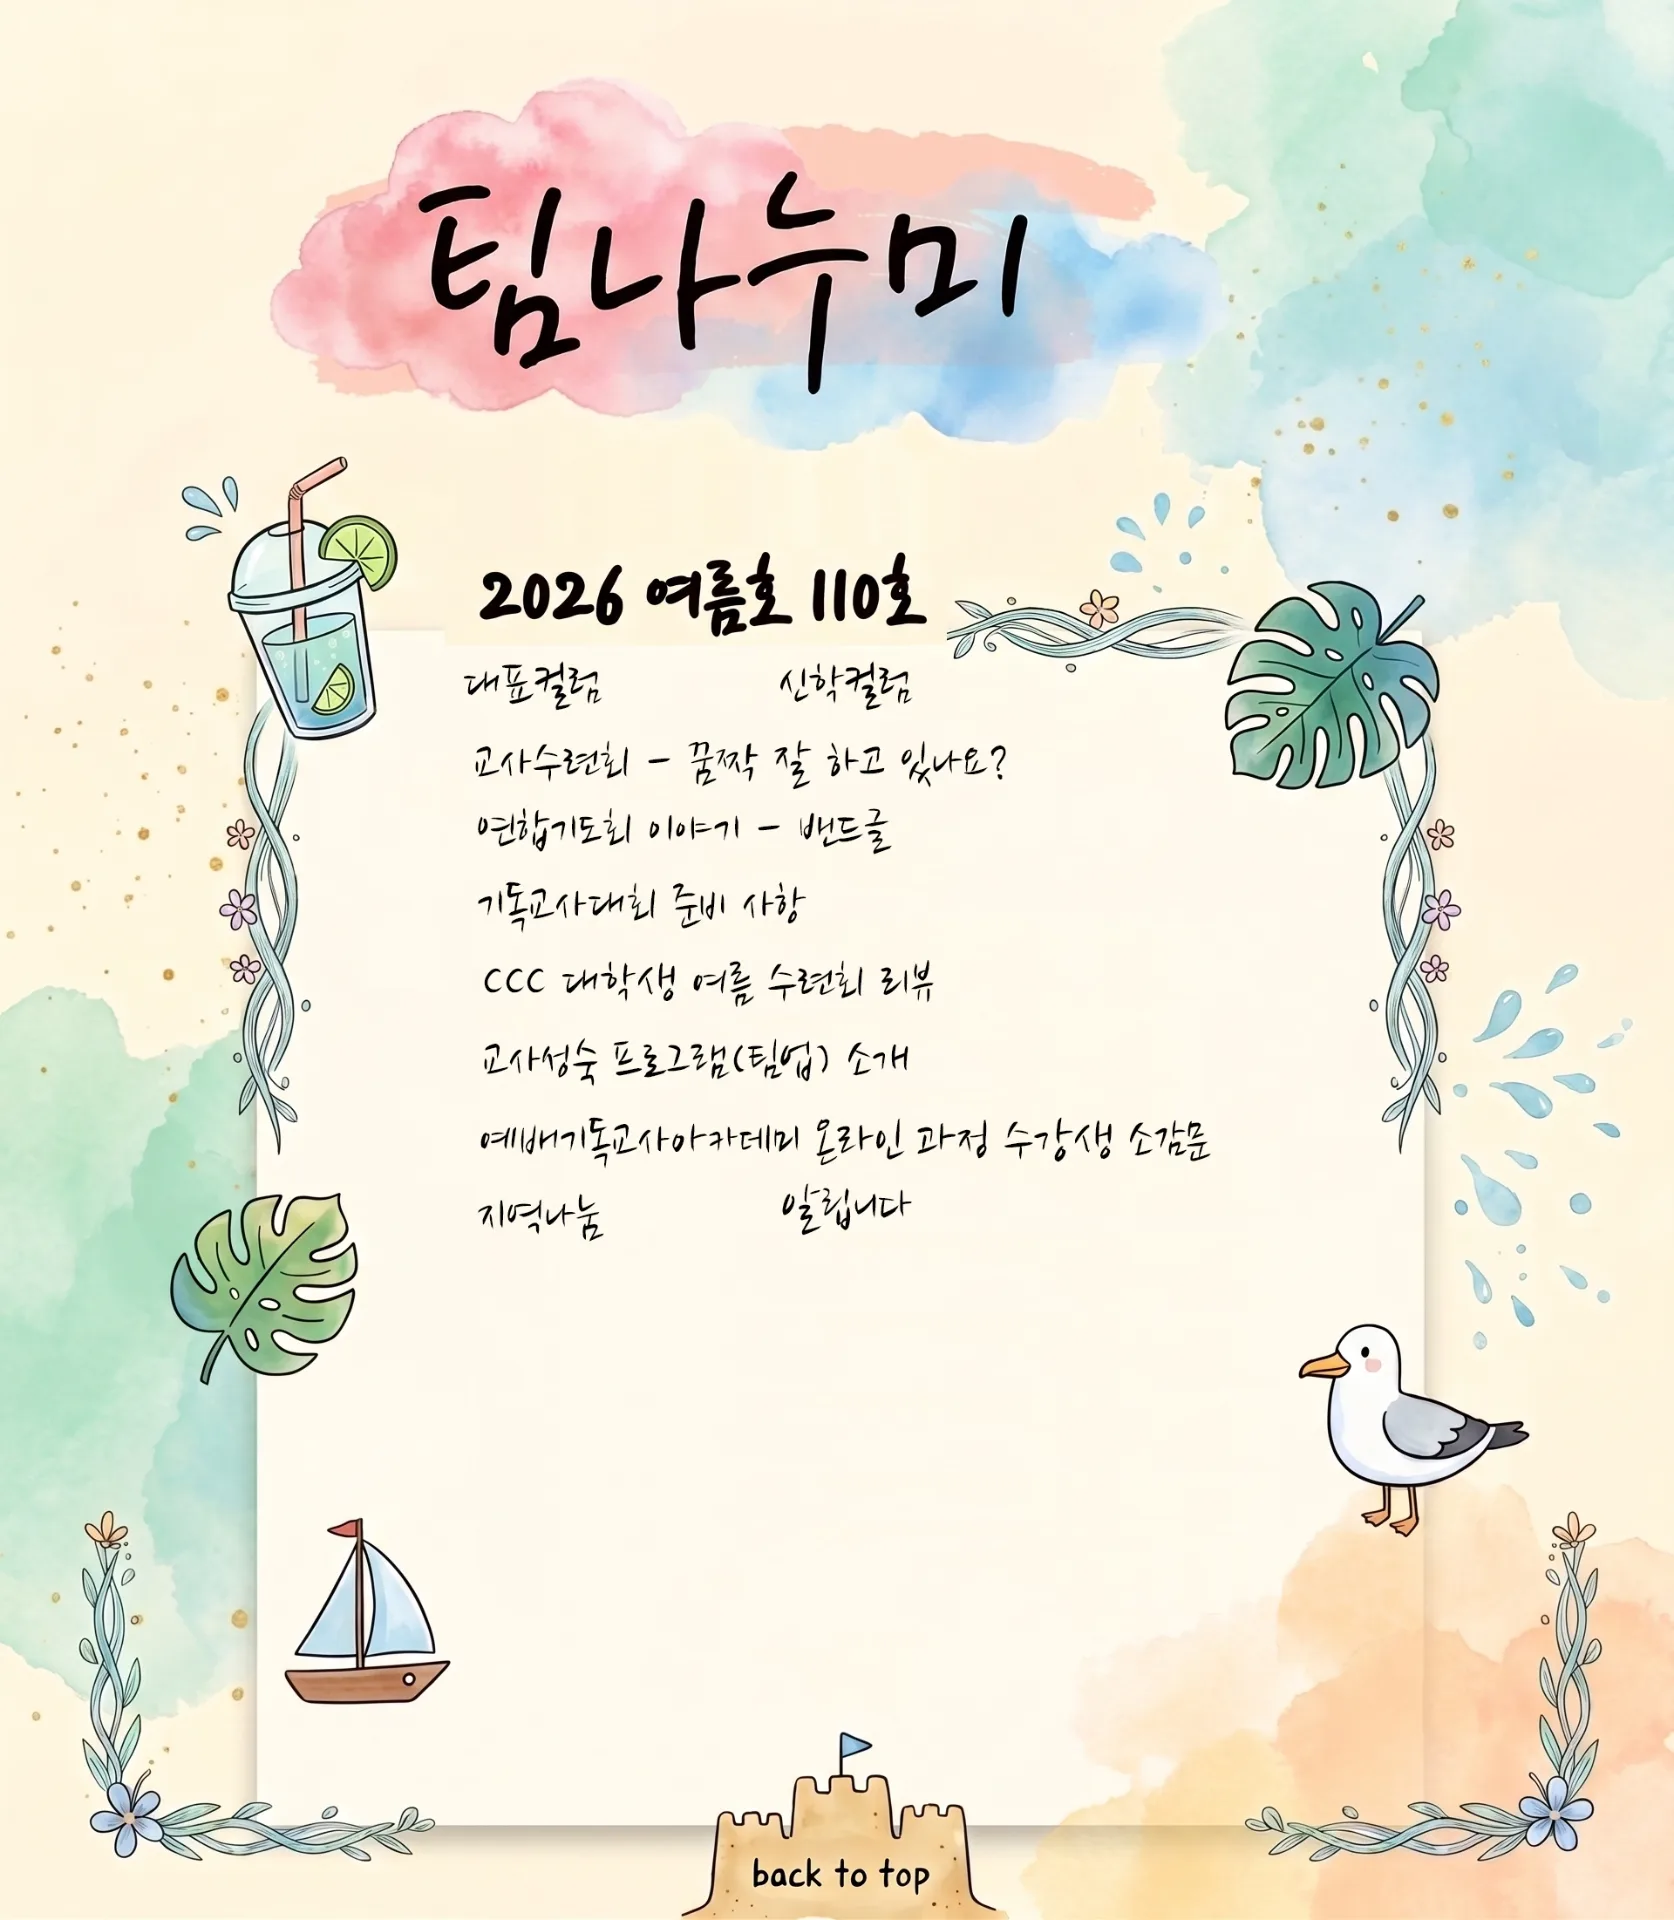 팀나누미
2026 여름호 110호
대표컬럼 신학컬럼
교사수련회 - 꿈짝 잘 하고 있나요?
연합기도회 이야기 - 밴드글
기독교사대회 준비 사항
CCC 대학생 여름 수련회 리뷰
교사성숙 프로그램(팀업) 소개
예배기독교사아카데미 온라인 과정 수강생 소감문
지역나눔 알립니다
back to top